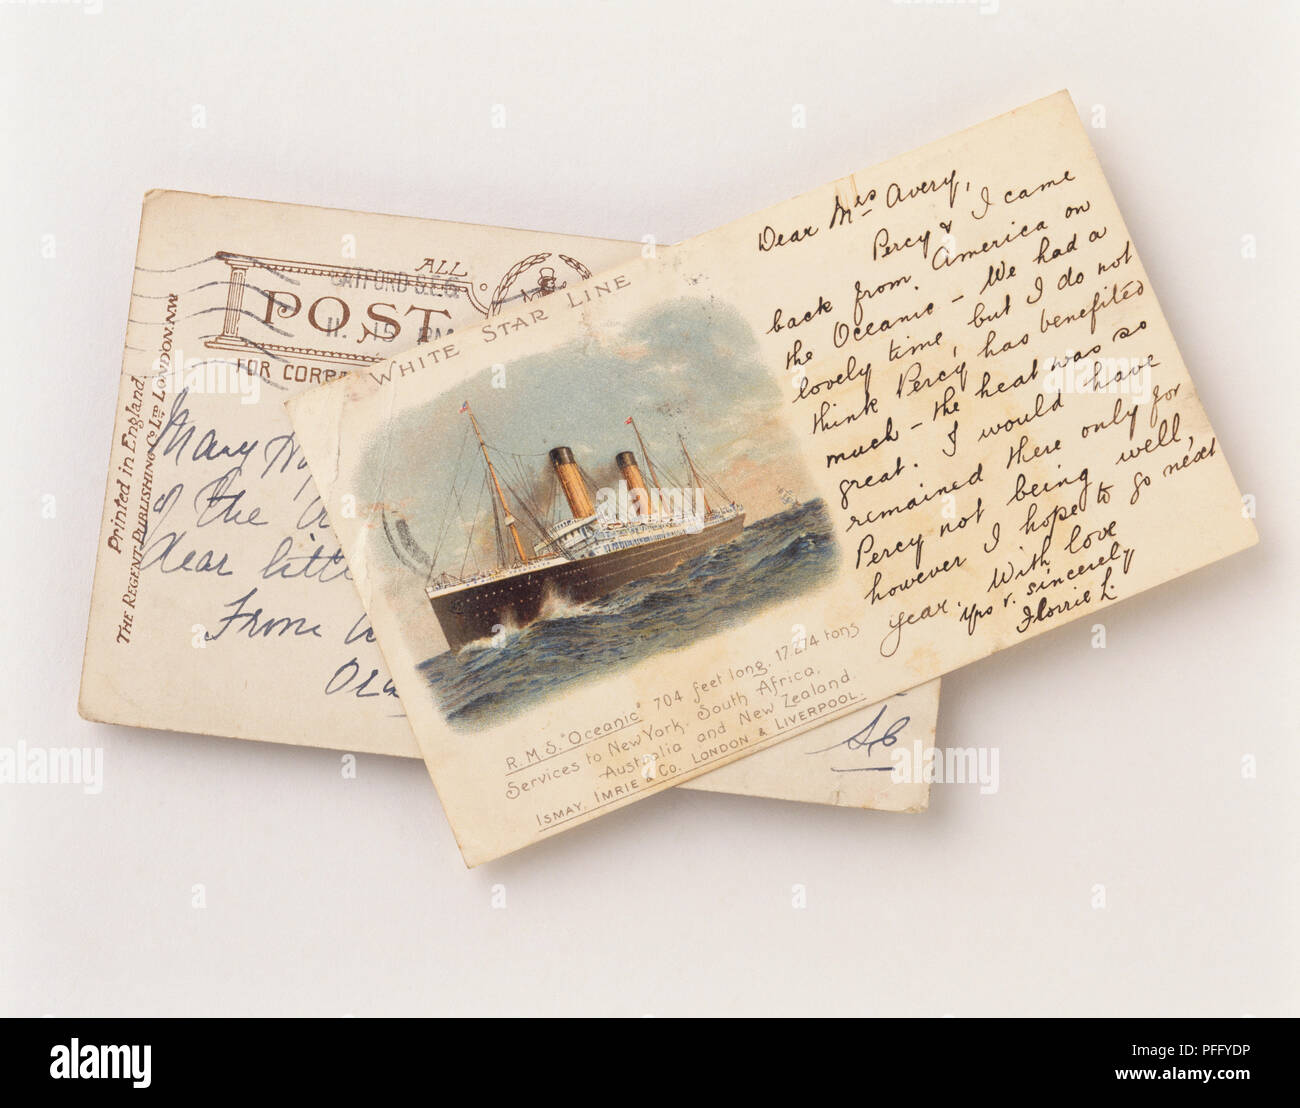 ALL
POST
CATFORD S.E.6.
11. 15 PM
FOR CORR
Printed in England.
THE REGENT PUBLISHING Co LTD LONDON. NW
Mary
of the
dear litt
From
WHITE STAR LINE
R.M.S. "Oceanic" 704 feet long. 17,274 tons
Services to New York, South Africa,
Australia and New Zealand.
ISMAY, IMRIE & Co. LONDON & LIVERPOOL.
Dear Mrs Avery,
Percy & I came
back from America on
the Oceanic - We had a
lovely time, but I do not
think Percy, has benefited
much - the heat was so
great. I would have
remained there only for
Percy not being well,
however I hope to go next
year. With love
Yrs v. sincerely
Florrie L.
alamy
Image ID: PFFYDP
www.alamy.com